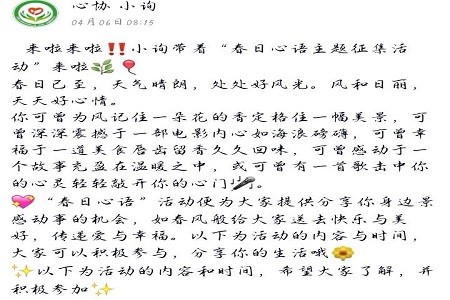 心协 小询
04月06日 08:15
来啦来啦‼️小询带着“春日心语主题征集活
动”来啦🌿🎈
春日已至，天气晴朗，处处好风光。风和日丽，
天天好心情。
你可曾为风记住一朵花的香定格住一幅美景，可
曾深深震撼于一部电影内心如海浪磅礴，可曾幸
福于一道美食唇齿留香久久回味，可曾感动于一
个故事充盈在温暖之中，或可曾有一首歌击中你
的心灵轻轻敲开你的心门🎤。
💖“春日心语”活动便为大家提供分享你身边景
感动事的机会，如春风般给大家送去快乐与美
好，传递爱与幸福。以下为活动的内容与时间，
大家可以积极参与，分享你的生活哦🌼
✨以下为活动的内容和时间，希望大家了解，并
积极参加✨